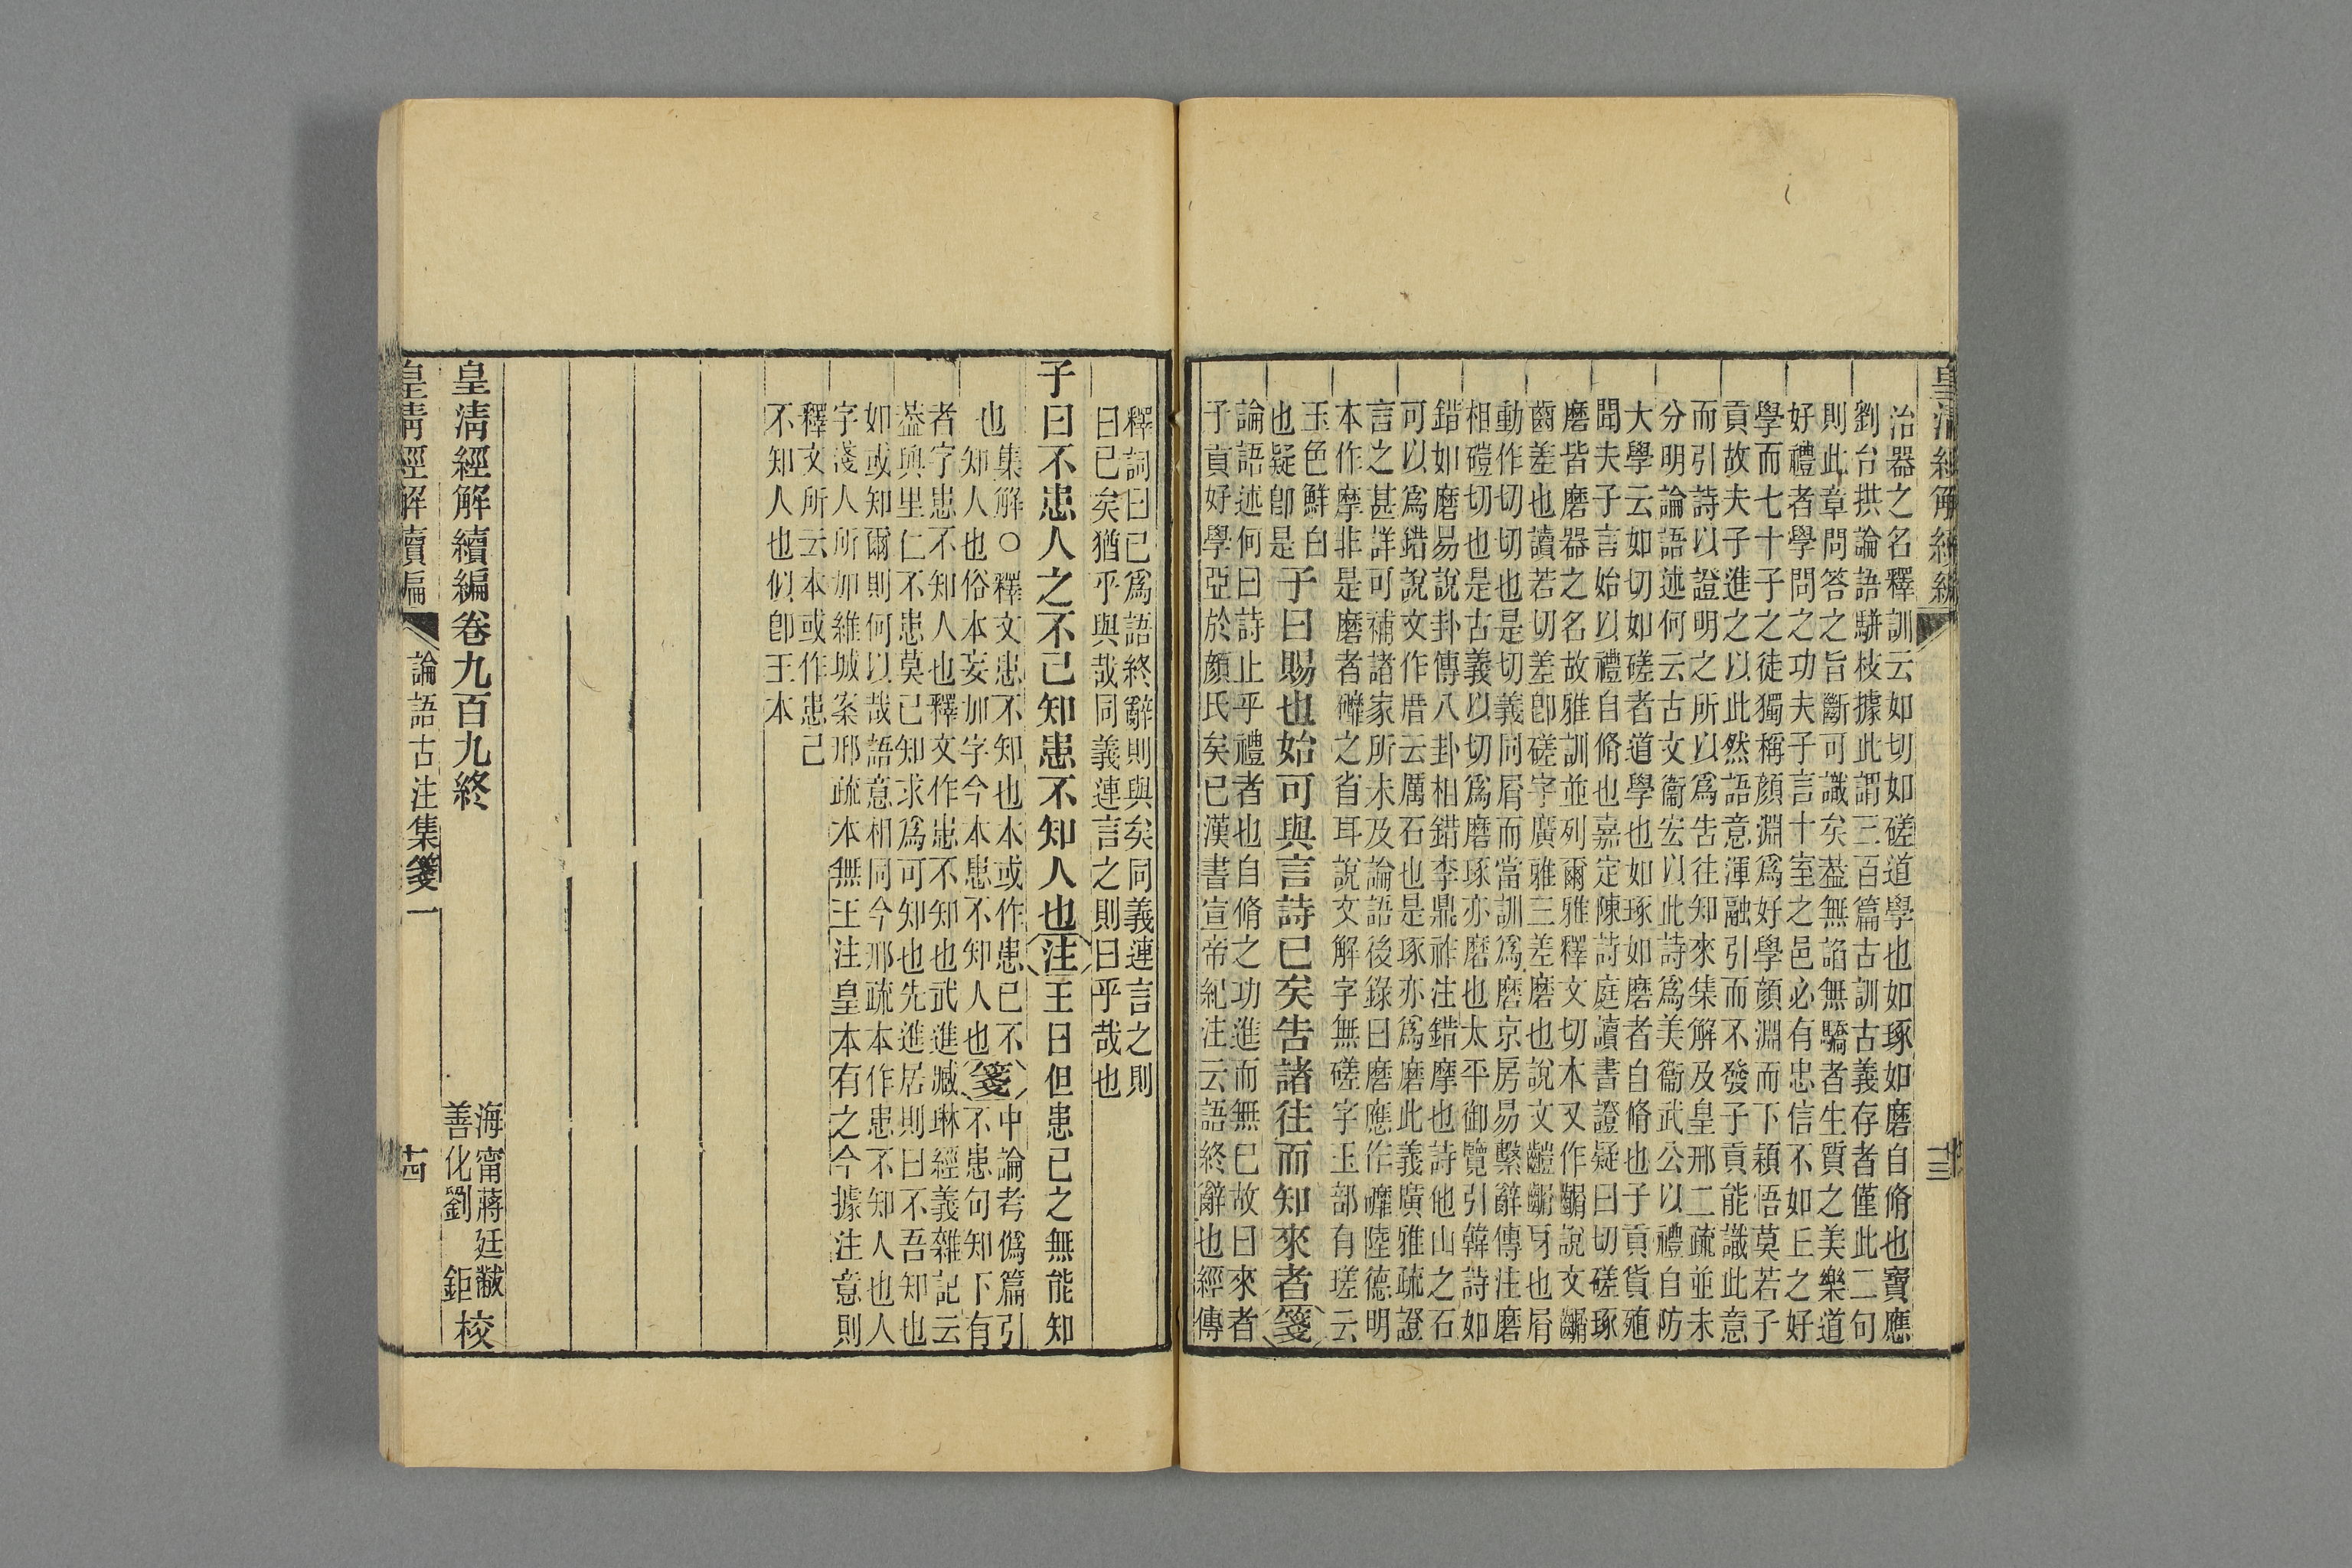 皇清經解續編
治器之名釋訓云如切如磋道學也如琢如磨自脩也寶應
劉台拱論語駢枝據此謂三百篇古訓古義存者僅此二句
則此章問答之旨斷可識矣蓋無諂無驕者生質之美樂道
好禮者學問之功夫子言十室之邑必有忠信不如丘之好
學而七十子之徒獨稱顏淵爲好學顏淵而下穎悟莫若子
貢故夫子進之以此然語意渾融引而不發子貢能識此意
而引詩以證明之所以爲告往知來集解及皇邢二疏並未
分明論語述何云古文衞宏以此詩爲美衞武公以禮自防
大學云如切如磋者道學也如琢如磨者自脩也子貢貨殖
聞夫子言始以禮自脩也嘉定陳詩庭讀書證疑曰切磋琢
磨皆磨器之名故雅訓並列爾雅釋文切本又作齵說文齵
齒差也讀若切差卽磋字廣雅三差磨也說文齸齵牙也屑
動作切切也是切義同屑而當訓爲磨京房易繫辭傳注磨
相磑切也是古義以切爲磨琢亦磨也太平御覽引韓詩如
錯如磨易說卦傳八卦相錯李鼎祚注錯摩也詩他山之石
可以爲錯說文作厝云厲石也是琢亦爲磨此義廣雅疏證
言之甚詳可補諸家所未及論語後錄曰磨應作䃺陸德明
本作摩非是磨者䃺之省耳說文解字無磋字玉部有瑳云
玉色鮮白
也疑卽是
子曰賜也始可與言詩已矣告諸往而知來者箋
論語述何曰詩止乎禮者也自脩之功進而無已故曰來者
子貢好學亞於顏氏矣已漢書宣帝紀注云語終辭也經傳
十三
釋詞曰已爲語終辭則與矣同義連言之則
曰已矣猶乎與哉同義連言之則曰乎哉也
子曰不患人之不已知患不知人也注王曰但患己之無能知
也
集解○釋文患不知也本或作患已不
知人也俗本妄加字今本患不知人也
箋
中論考僞篇引
不患句知下有
者字患不知人也釋文作患不知也武進臧琳經義雜記云
蓋與里仁不患莫已知求爲可知也先進居則曰不吾知也
如或知爾則何以哉語意相同今邢疏本作患不知人也人
字淺人所加維城案邢疏本無王注皇本有之今據注意則
釋文所云本或作患己
不知人也似卽王本
皇清經解續編卷九百九終
海甯蔣廷黻
善化劉 鉅
校
皇清經解續編
論語古注集箋一
十四